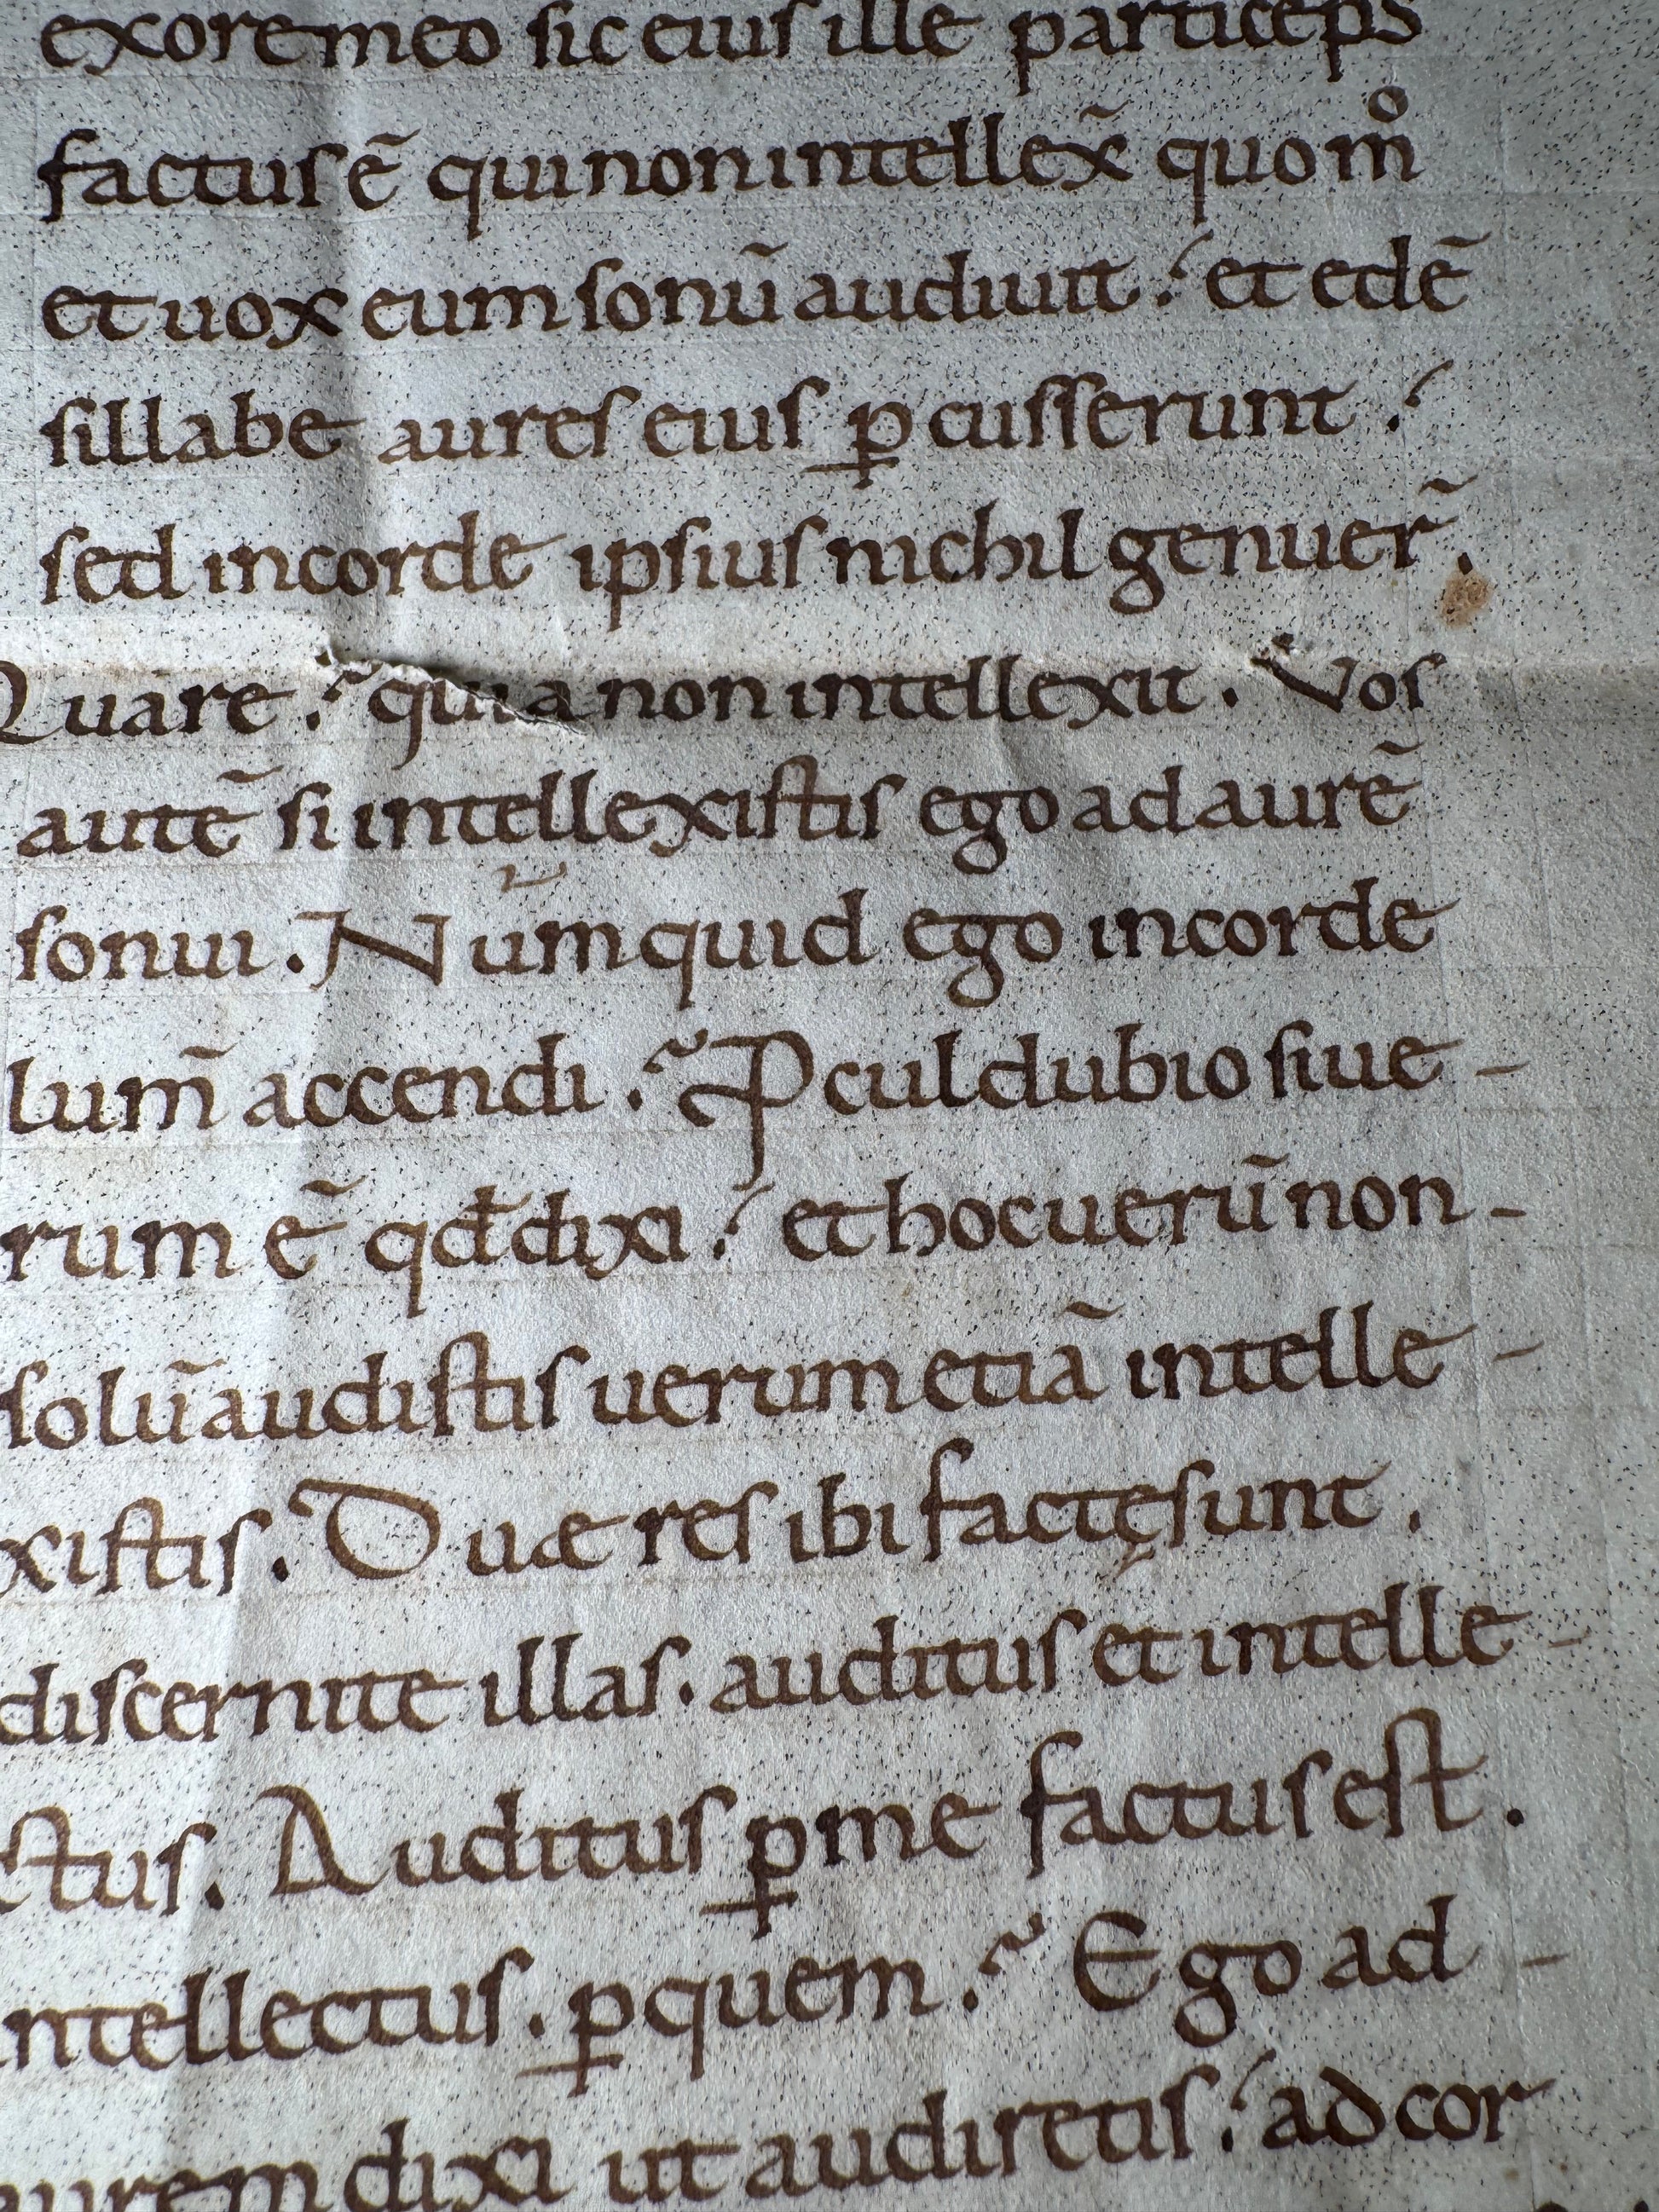 exoremeo sic eius ille particeps
factus ē qui non intellex̄ quom̊
et uox eum sonū audiuit et edē
sillabe aures eius ꝑcusserunt
sed in corde ipsius nichil genuer̄.
Quare? quia non intellexit. Vos
autē si intellexistis ego ad aurē
sonui. Nūmquid ego in corde
lum̄ accendi? Ꝓculdubio si ue-
rum ē qd̄ dixi et hoc uerū non-
solū audistis uerum etiā intelle-
xistis. Duæ res ibi factę sunt.
discernite illas. auditus et intelle-
ctus. Auditus ꝑ me factus est.
ntellectus. ꝑ quem? Ego ad-
urem dixi ut audiretis ad cor